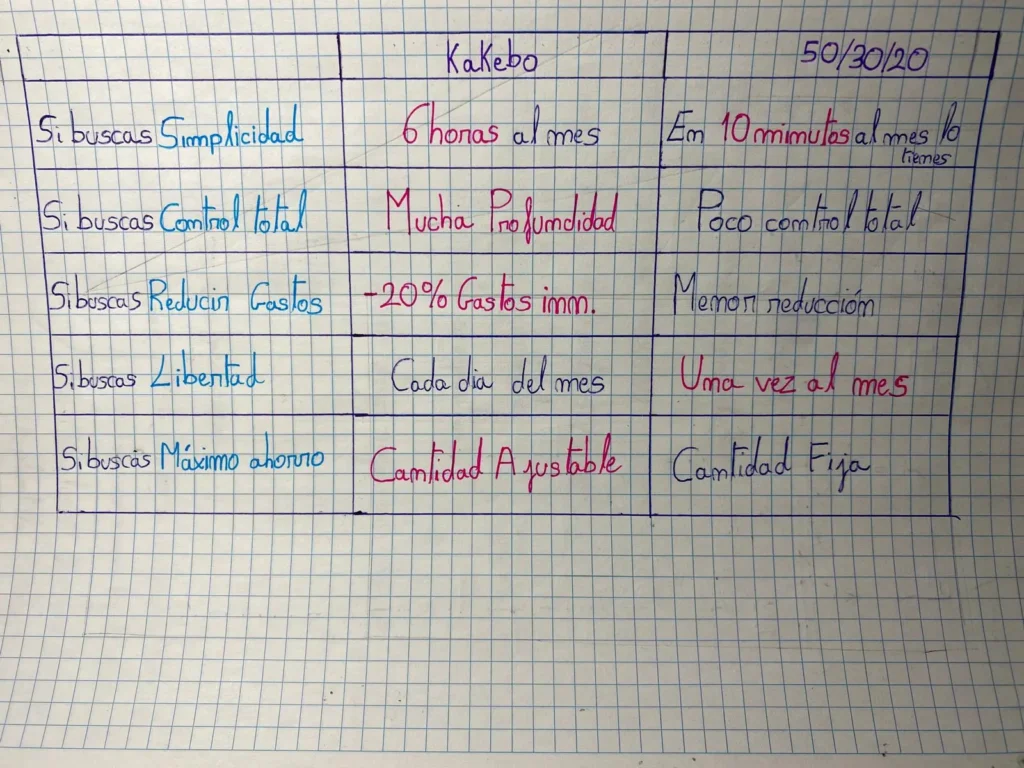 Kakebo 50/30/20
Si buscas Simplicidad 6 horas al mes En 10 minutos al mes lo
tienes
Si buscas Control total Mucha Profundidad Poco control total
Si buscas Reducir Gastos -20% Gastos inn. Menor reducción
Si buscas Libertad Cada dia del mes Una vez al mes
Si buscas Máximo ahorro Cantidad Ajustable Cantidad Fija